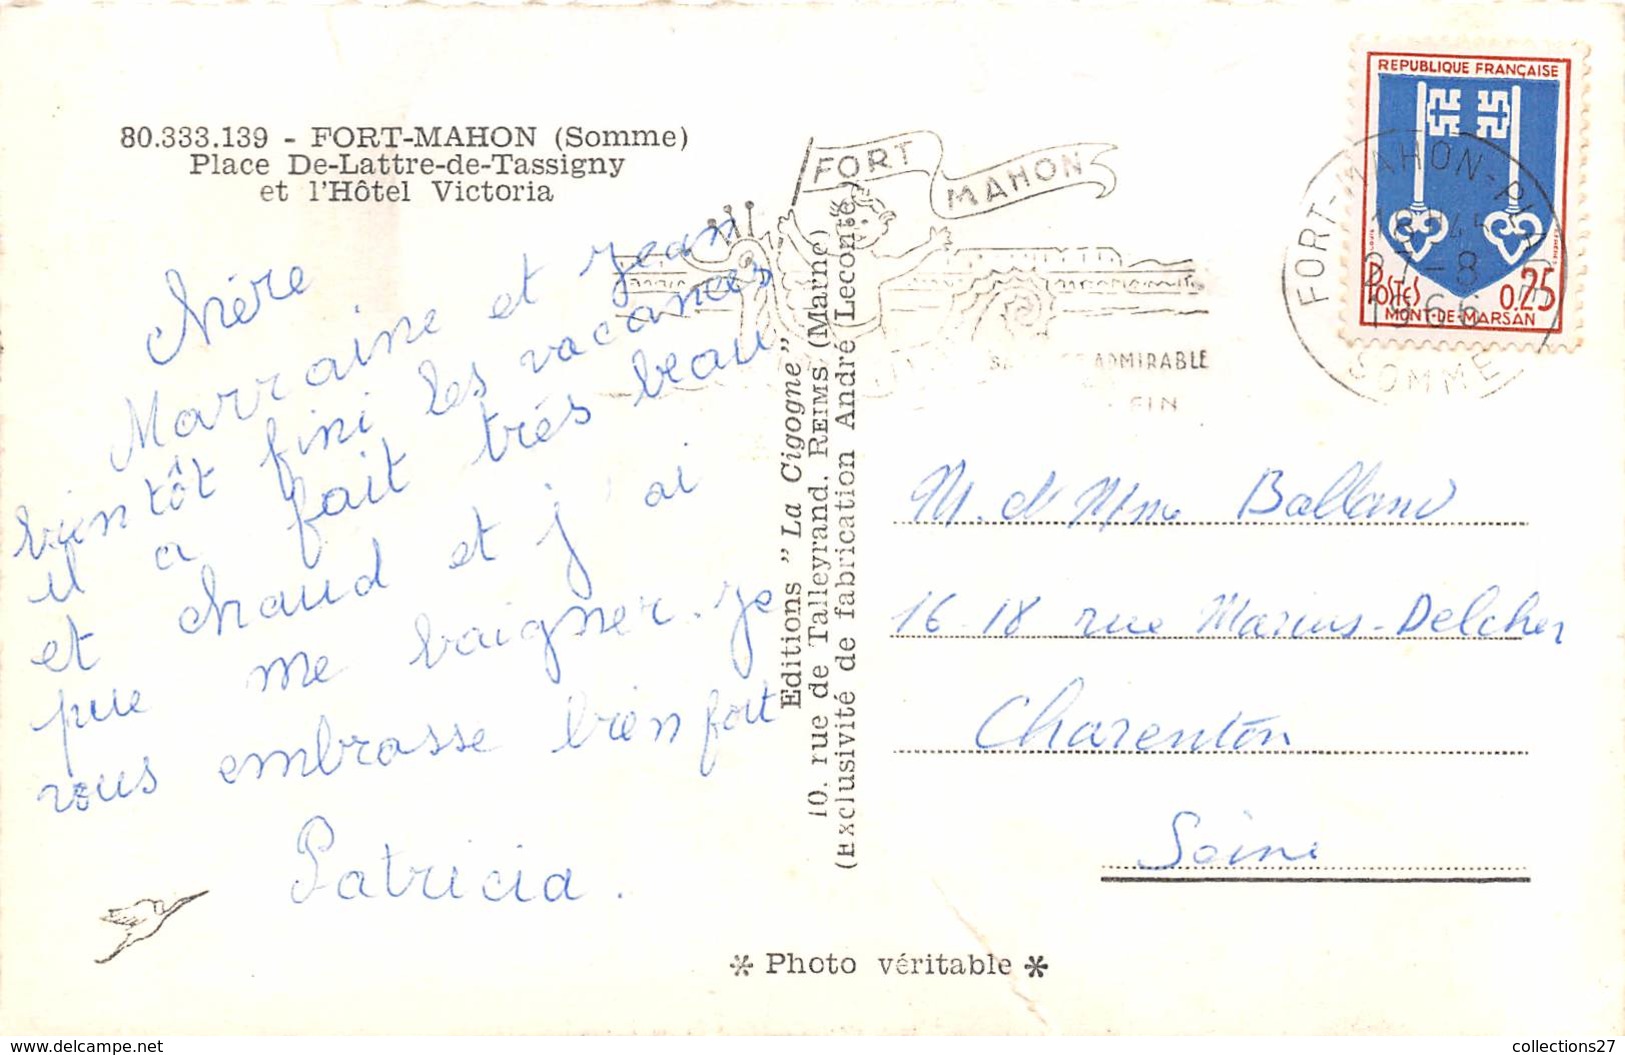 80.333.139 - FORT-MAHON (Somme)
Place De-Lattre-de-Tassigny
et l'Hôtel Victoria
Chère
Marraine et Jean
bientôt fini les vacances
il a fait très beau
et chaud et j'ai
pue me baigner. Je
vous embrasse bien fort
Patricia.
Editions "La Cigogne"
10, rue de Talleyrand, REIMS (Marne)
(Exclusivité de fabrication André Leconte)
✻ Photo véritable ✻
FORT MAHON
ADMIRABLE
FIN
FORT-MAHON-PLAGE
18 45
27-8
1966
SOMME
REPUBLIQUE FRANÇAISE
POSTES 0,25
MONT-DE-MARSAN
M. et Mme Balland
16-18 rue Marius-Delcher
Charenton
Seine
collections27
www.delcampe.net